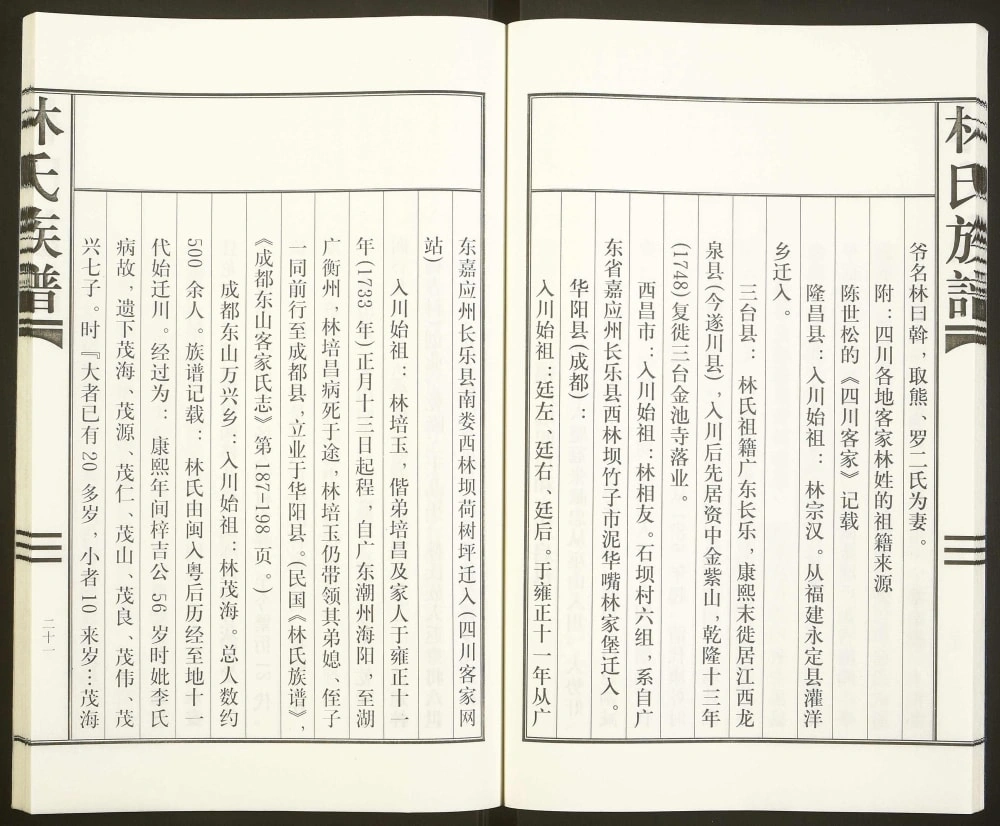 林氏族譜
爷名林曰斡，取熊、罗二氏为妻。
附：四川各地客家林姓的祖籍来源
陈世松的《四川客家》记载
隆昌县：入川始祖：林宗汉。从福建永定县灌洋
乡迁入。
三台县：林氏祖籍广东长乐，康熙末徙居江西龙
泉县(今遂川县)，入川后先居资中金紫山，乾隆十三年
(1748)复徙三台金池寺落业。
西昌市：入川始祖：林相友。石坝村六组，系自广
东省嘉应州长乐县西林坝竹子市泥华嘴林家堡迁入。
华阳县(成都)：
入川始祖：廷左、廷右、廷后。于雍正十一年从广
东嘉应州长乐县南娄西林坝荷树坪迁入(四川客家网
站)
入川始祖：林培玉，偕弟培昌及家人于雍正十一
年(1733 年)正月十二日起程，自广东潮州海阳，至湖
广衡州，林培昌病死于途，林培玉仍带领其弟媳、侄子
一同前行至成都县，立业于华阳县。(民国《林氏族谱》，
《成都东山客家氏志》第 187-198 页。)
成都东山万兴乡：入川始祖：林茂海。总人数约
500 余人。族谱记载：林氏由闽入粤后历经至地十一
代始迁川。经过为：康熙年间梓吉公 56 岁时妣李氏
病故，遗下茂海、茂源、茂仁、茂山、茂良、茂伟、茂
兴七子。时『大者已有 20 多岁，小者 10 来岁…茂海
林氏族谱
二十一